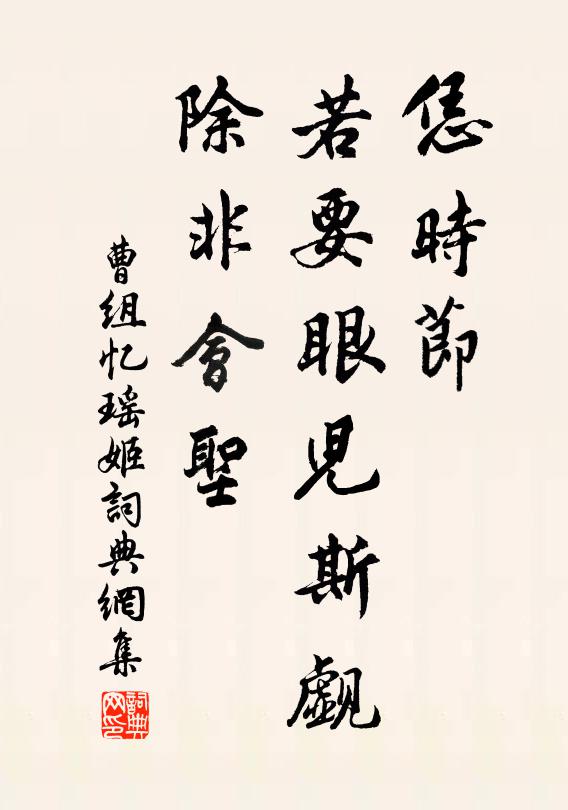 恁時節
若要眼兒斯覷
除非會聖
曹組忆瑶姬詞典網集
詞典网印